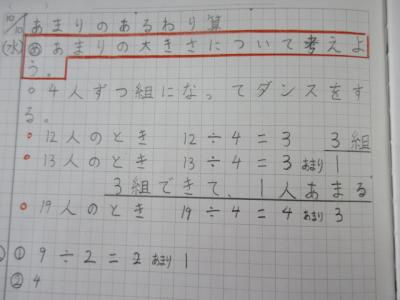 10/10 あまりのあるわり算
(水) あまりの大きさについて考えよ
う。
○4人ずつ組になってダンスをす
る。
○12人のとき 12÷4=3 3組
○13人のとき 13÷4=3あまり1
3組できて、1人あまる
○19人のとき 19÷4=4あまり3
① 9÷2=2あまり1
② 4